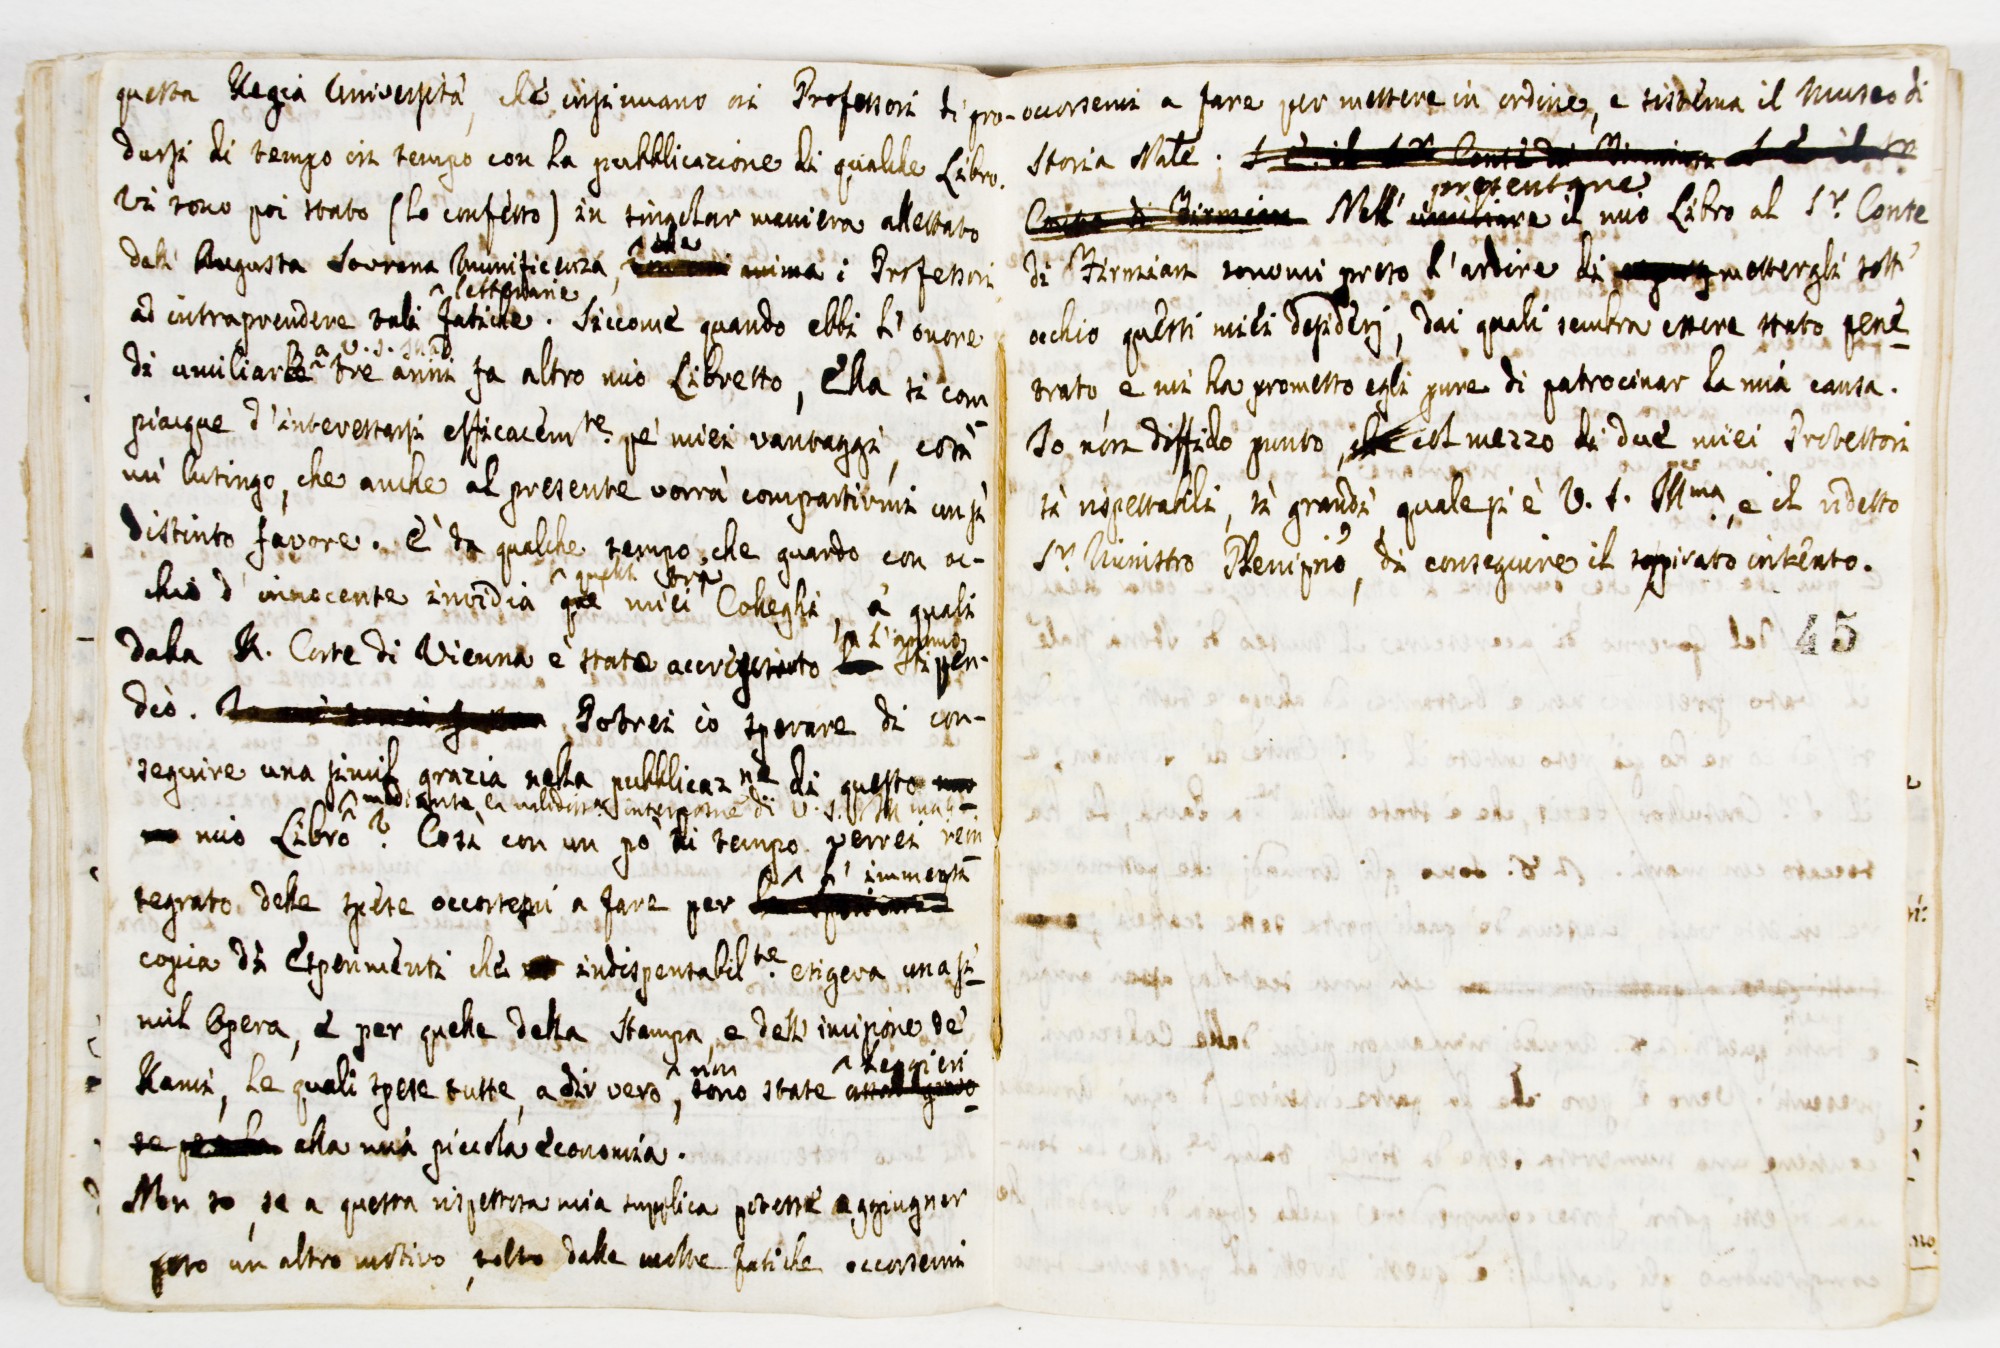 questa Regia Università, che insinuano ai Professori di pro-
dursi di tempo in tempo con la pubblicazione di qualche Libro.
Vi sono poi stato (lo confesso) in singolar maniera allettato
dall' Augusta Sovrana Munificenza, che anima i Professori
ad intraprendere tali letterarie fatiche. Siccome quando ebbi l'onore
di umiliare a V. S. Ill tre anni fa altro mio Libretto, Ella si com-
piacque d'interessarsi efficacemte pe' miei vantaggi, così
mi lusingo, che anche al presente vorrà compartirmi un sì
distinto favore. È da qualche tempo che guardo con oc-
chio d'innocente invidia questi tre miei Colleghi, a' quali
dalla R. Corte di Vienna è stato accresciuto lo stipen-
dio. Potrei io sperare di con-
seguire una simil grazia nella pubblicazne di questo
mio Libro mediante la validissa interposne di V. S. Illma? Così con un po' di tempo verrei rein
tegrato delle spese occorsemi a fare per l'immensa
copia di Esperimenti che indispensabilte esigeva una si-
mil Opera, e per quelle della Stampa, e dell'incisione de'
Rami, le quali spese tutte, a dir vero, non sono state leggieri
alla mia piccola economia.
Non so, se a questa rispettosa mia supplica potesse aggiugner
peso un altro motivo, tolto dalle molte fatiche occorsemi
occorsemi a fare per mettere in ordine, e sistema il Museo di
Storia Nale.
Nell' presentare il mio Libro al Sr. Conte
di Firmian sonomi preso l'ardire di mettergli sott'
occhio questi miei desiderj, dai quali sembra essere stato pene-
trato e mi ha promesso egli pure di patrocinar la mia causa.
Io non diffido punto, col mezzo di due miei Protettori
sì rispettabili, sì grandi, quale si è V. S. Illma, e il sudetto
Sr. Ministro Plenipnio, di conseguire il sospirato intento.
45